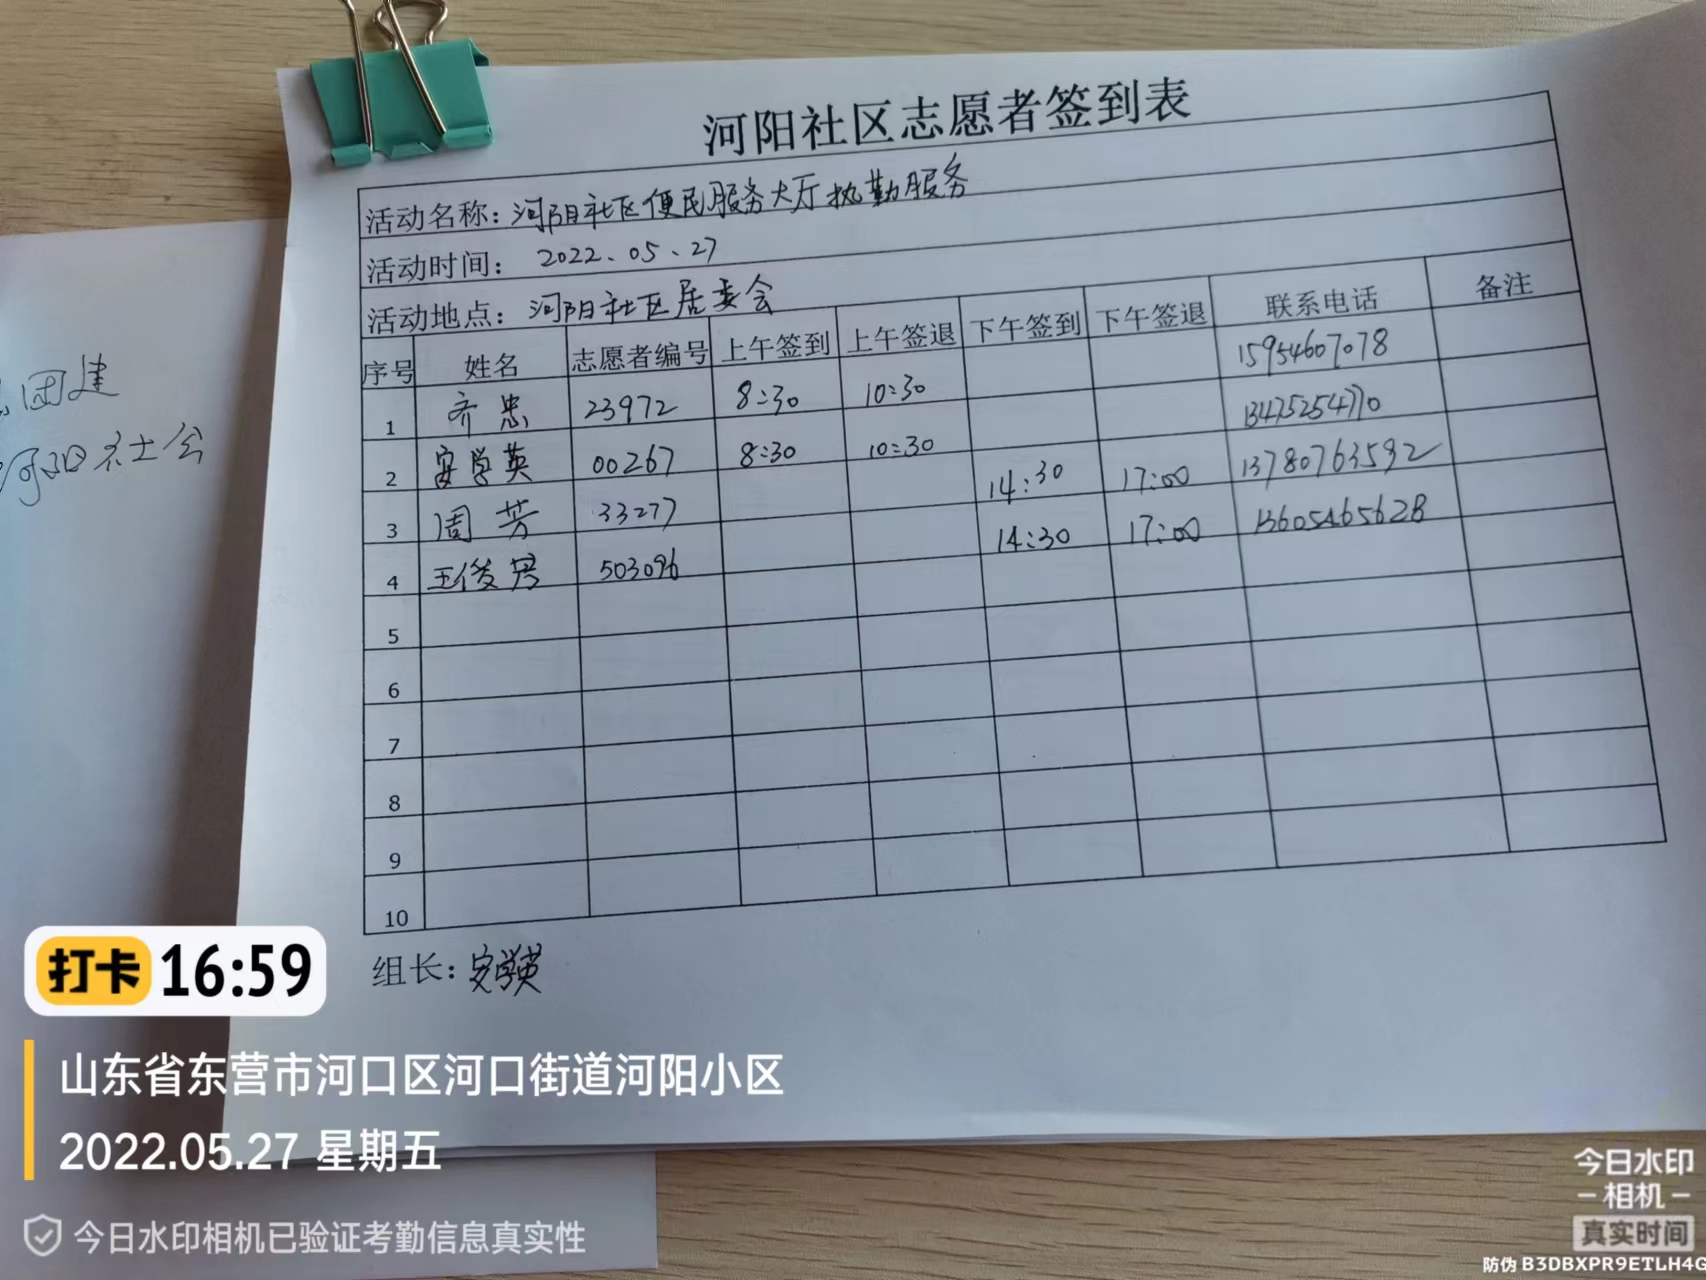 河阳社区志愿者签到表
活动名称：河阳社区便民服务大厅执勤服务
活动时间： 2022.05.27
活动地点：河阳社区居委会
序号 姓名 志愿者编号 上午签到 上午签退 下午签到 下午签退 联系电话 备注
1 齐忠 23972 8:30 10:30 15954607078
2 安学英 00267 8:30 10:30 13475254770
3 周芳 33277 14:30 17:00 13780763592
4 王俊男 503096 14:30 17:00 13605465628
5
6
7
8
9
10
组长：安学英
团建
河阳社会
打卡 16:59
山东省东营市河口区河口街道河阳小区
2022.05.27 星期五
今日水印相机已验证考勤信息真实性
今日水印
相机
真实时间
防伪 B3DBXPR9ETLH4